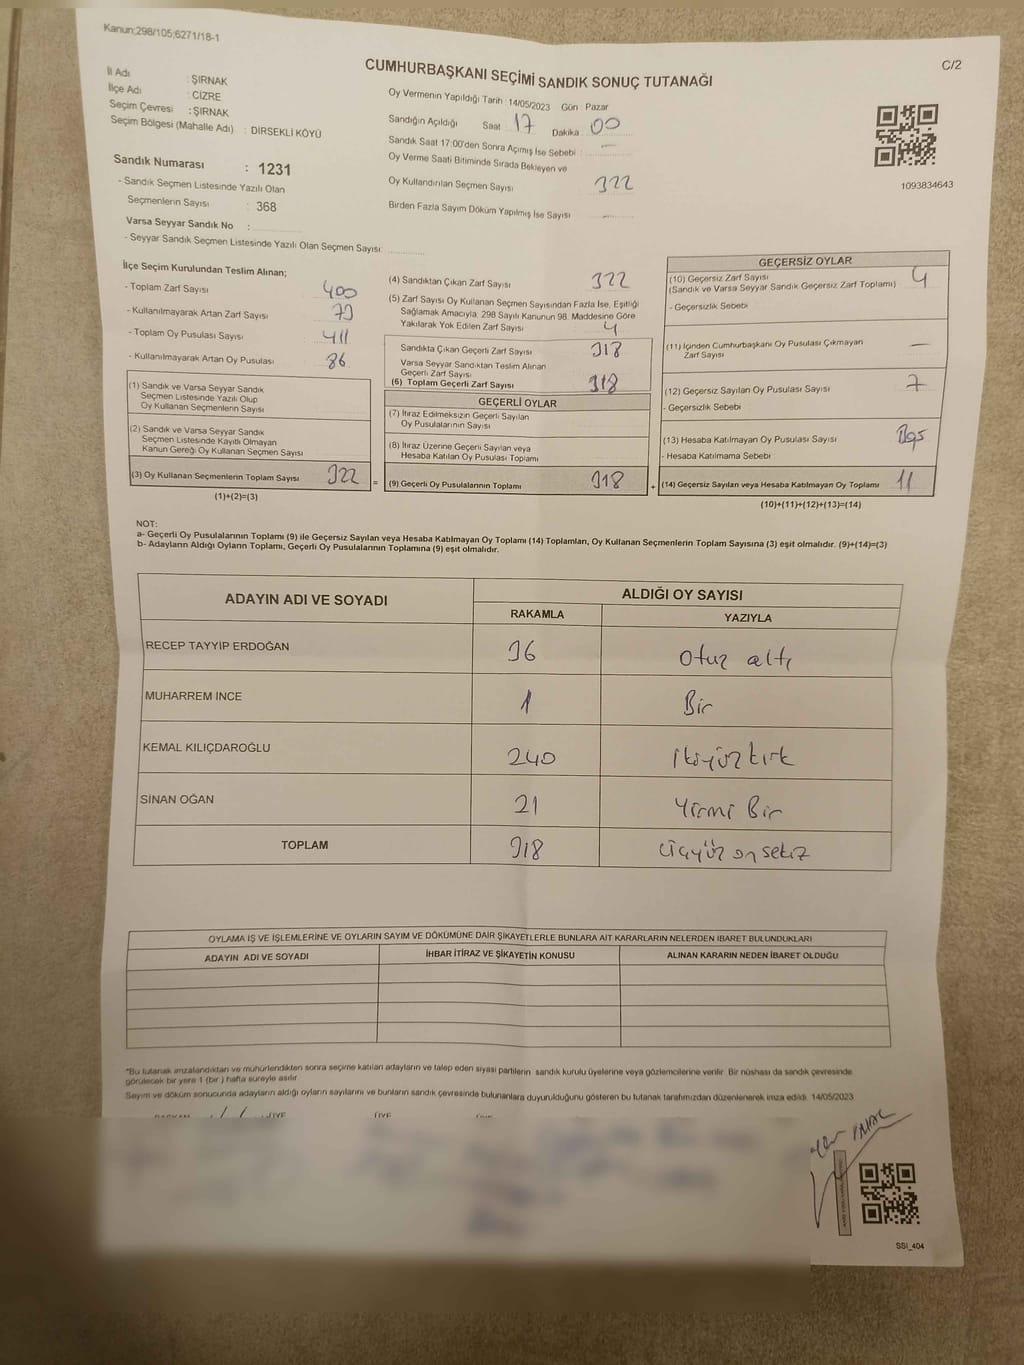 Kanun;298/105;6271/18-1
C/2
CUMHURBAŞKANI SEÇİMİ SANDIK SONUÇ TUTANAĞI
İl Adı : ŞIRNAK
İlçe Adı : CİZRE
Seçim Çevresi : ŞIRNAK
Seçim Bölgesi (Mahalle Adı) : DİRSEKLİ KÖYÜ
Sandık Numarası : 1231
- Sandık Seçmen Listesinde Yazılı Olan
Seçmenlerin Sayısı : 368
Varsa Seyyar Sandık No :
- Seyyar Sandık Seçmen Listesinde Yazılı Olan Seçmen Sayısı:
Oy Vermenin Yapıldığı Tarih : 14/05/2023 Gün : Pazar
Sandığın Açıldığı Saat 17 Dakika 00
Sandık Saat 17:00'den Sonra Açımış İse Sebebi : —
Oy Verme Saati Bitiminde Sırada Bekleyen ve
Oy Kullandırılan Seçmen Sayısı 322
Birden Fazla Sayım Döküm Yapılmış İse Sayısı —
1093834643
İlçe Seçim Kurulundan Teslim Alınan;
- Toplam Zarf Sayısı 400
- Kullanılmayarak Artan Zarf Sayısı
- Toplam Oy Pusulası Sayısı 411
- Kullanılmayarak Artan Oy Pusulası 86
(1) Sandık ve Varsa Seyyar Sandık
Seçmen Listesinde Yazılı Olup
Oy Kullanan Seçmenlerin Sayısı
(2) Sandık ve Varsa Seyyar Sandık
Seçmen Listesinde Kayıtlı Olmayan
Kanun Gereği Oy Kullanan Seçmen Sayısı
(3) Oy Kullanan Seçmenlerin Toplam Sayısı 322 =
(1)+(2)=(3)
(4) Sandıktan Çıkan Zarf Sayısı 322
(5) Zarf Sayısı Oy Kullanan Seçmen Sayısından Fazla İse, Eşitliği
Sağlamak Amacıyla, 298 Sayılı Kanunun 98. Maddesine Göre
Yakılarak Yok Edilen Zarf Sayısı 4
Sandıkta Çıkan Geçerli Zarf Sayısı 318
Varsa Seyyar Sandıktan Teslim Alınan
Geçerli Zarf Sayısı
(6) Toplam Geçerli Zarf Sayısı 318
GEÇERLİ OYLAR
(7) İtiraz Edilmeksizin Geçerli Sayılan
Oy Pusulalarının Sayısı
(8) İtiraz Üzerine Geçerli Sayılan veya
Hesaba Katılan Oy Pusulası Toplamı
(9) Geçerli Oy Pusulalarının Toplamı 318 +
GEÇERSİZ OYLAR
(10) Geçersiz Zarf Sayısı 4
(Sandık ve Varsa Seyyar Sandık Geçersiz Zarf Toplamı)
- Geçersizlik Sebebi
(11) İçinden Cumhurbaşkanı Oy Pusulası Çıkmayan —
Zarf Sayısı
(12) Geçersiz Sayılan Oy Pusulası Sayısı 7
- Geçersizlik Sebebi
(13) Hesaba Katılmayan Oy Pusulası Sayısı
- Hesaba Katılmama Sebebi
(14) Geçersiz Sayılan veya Hesaba Katılmayan Oy Toplamı 11
(10)+(11)+(12)+(13)=(14)
NOT:
a- Geçerli Oy Pusulalarının Toplamı (9) ile Geçersiz Sayılan veya Hesaba Katılmayan Oy Toplamı (14) Toplamları, Oy Kullanan Seçmenlerin Toplam Sayısına (3) eşit olmalıdır. (9)+(14)=(3)
b- Adayların Aldığı Oyların Toplamı, Geçerli Oy Pusulalarının Toplamına (9) eşit olmalıdır.
ADAYIN ADI VE SOYADI ALDIĞI OY SAYISI
RAKAMLA YAZIYLA
RECEP TAYYİP ERDOĞAN 36 otuz altı
MUHARREM İNCE 1 Bir
KEMAL KILIÇDAROĞLU 240 ikiyüz kırk
SİNAN OĞAN 21 Yirmi Bir
TOPLAM 318 üçyüz on sekiz
OYLAMA İŞ VE İŞLEMLERİNE VE OYLARIN SAYIM VE DÖKÜMÜNE DAİR ŞİKAYETLERLE BUNLARA AİT KARARLARIN NELERDEN İBARET BULUNDUKLARI
ADAYIN ADI VE SOYADI İHBAR İTİRAZ VE ŞİKAYETİN KONUSU ALINAN KARARIN NEDEN İBARET OLDUĞU
*Bu tutanak imzalandıktan ve mühürlendikten sonra seçime katılan adayların ve talep eden siyasi partilerin sandık kurulu üyelerine veya gözlemcilerine verilir. Bir nüshası da sandık çevresinde
görülecek bir yere 1 (bir) hafta süreyle asılır.
Sayım ve döküm sonucunda adayların aldığı oyların sayılarını ve bunların sandık çevresinde bulunanlara duyurulduğunu gösteren bu tutanak tarafımızdan düzenlenerek imza edildi. 14/05/2023
SSI_404